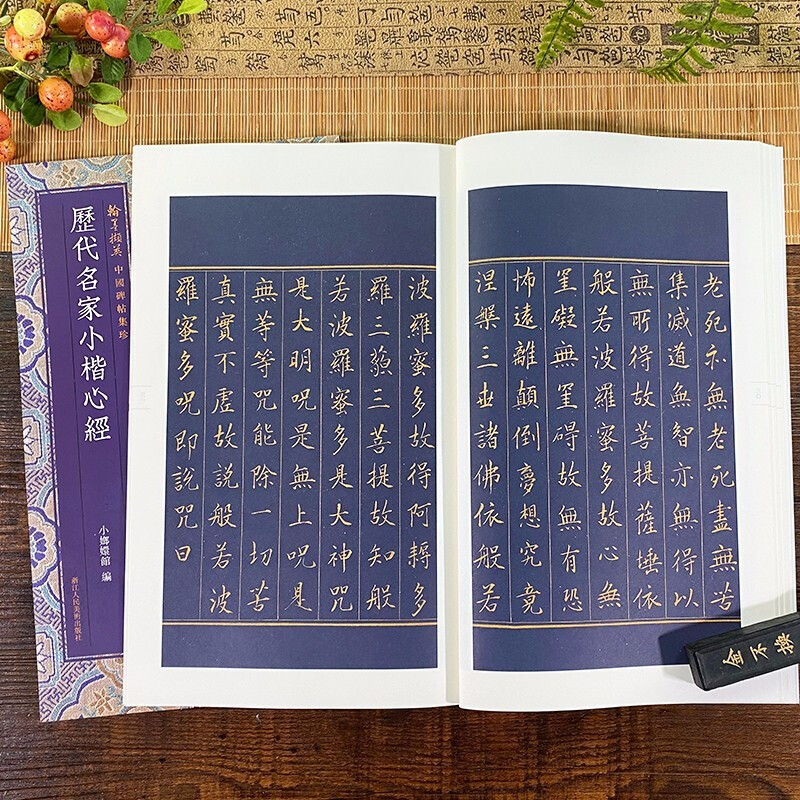 老死亦無老死盡無苦
集滅道無智亦無得以
無所得故菩提薩埵依
般若波羅蜜多故心無
罣礙無罣碍故無有恐
怖遠離顛倒夢想究竟
涅槃三世諸佛依般若
波羅蜜多故得阿耨多
羅三藐三菩提故知般
若波羅蜜多是大神咒
是大明咒是無上咒是
無等等咒能除一切苦
真實不虛故說般若波
羅蜜多咒即說咒曰
翰墨擷英 中國碑帖集珍
歷代名家小楷心經
小嫏嬛館 編
浙江人民美术出版社
金不换